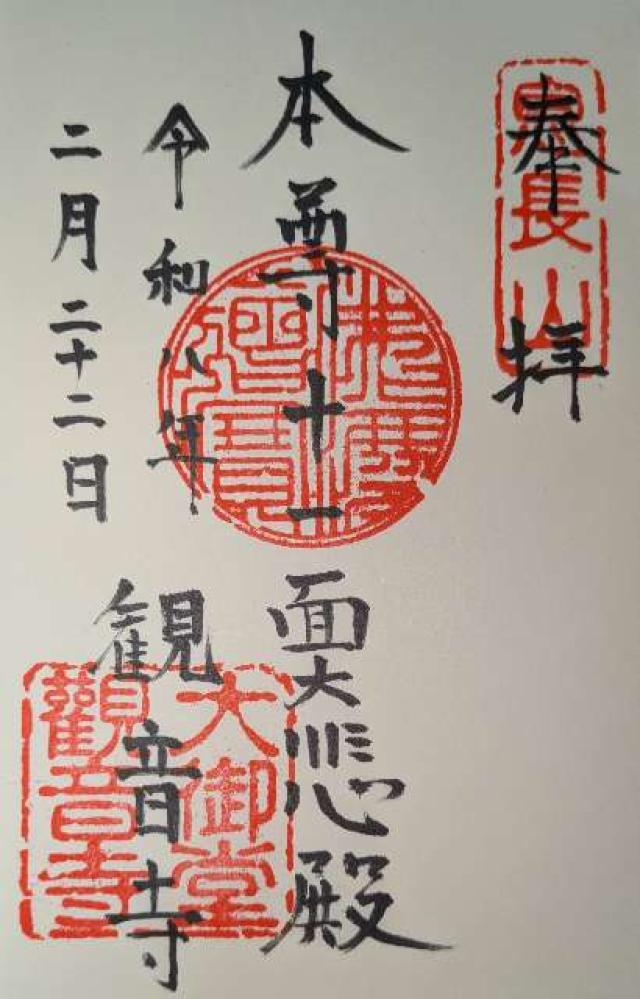 奉拝
息長山
本尊十一面大悲殿
令和八年
二月二十二日
観音寺
大御堂
觀音寺